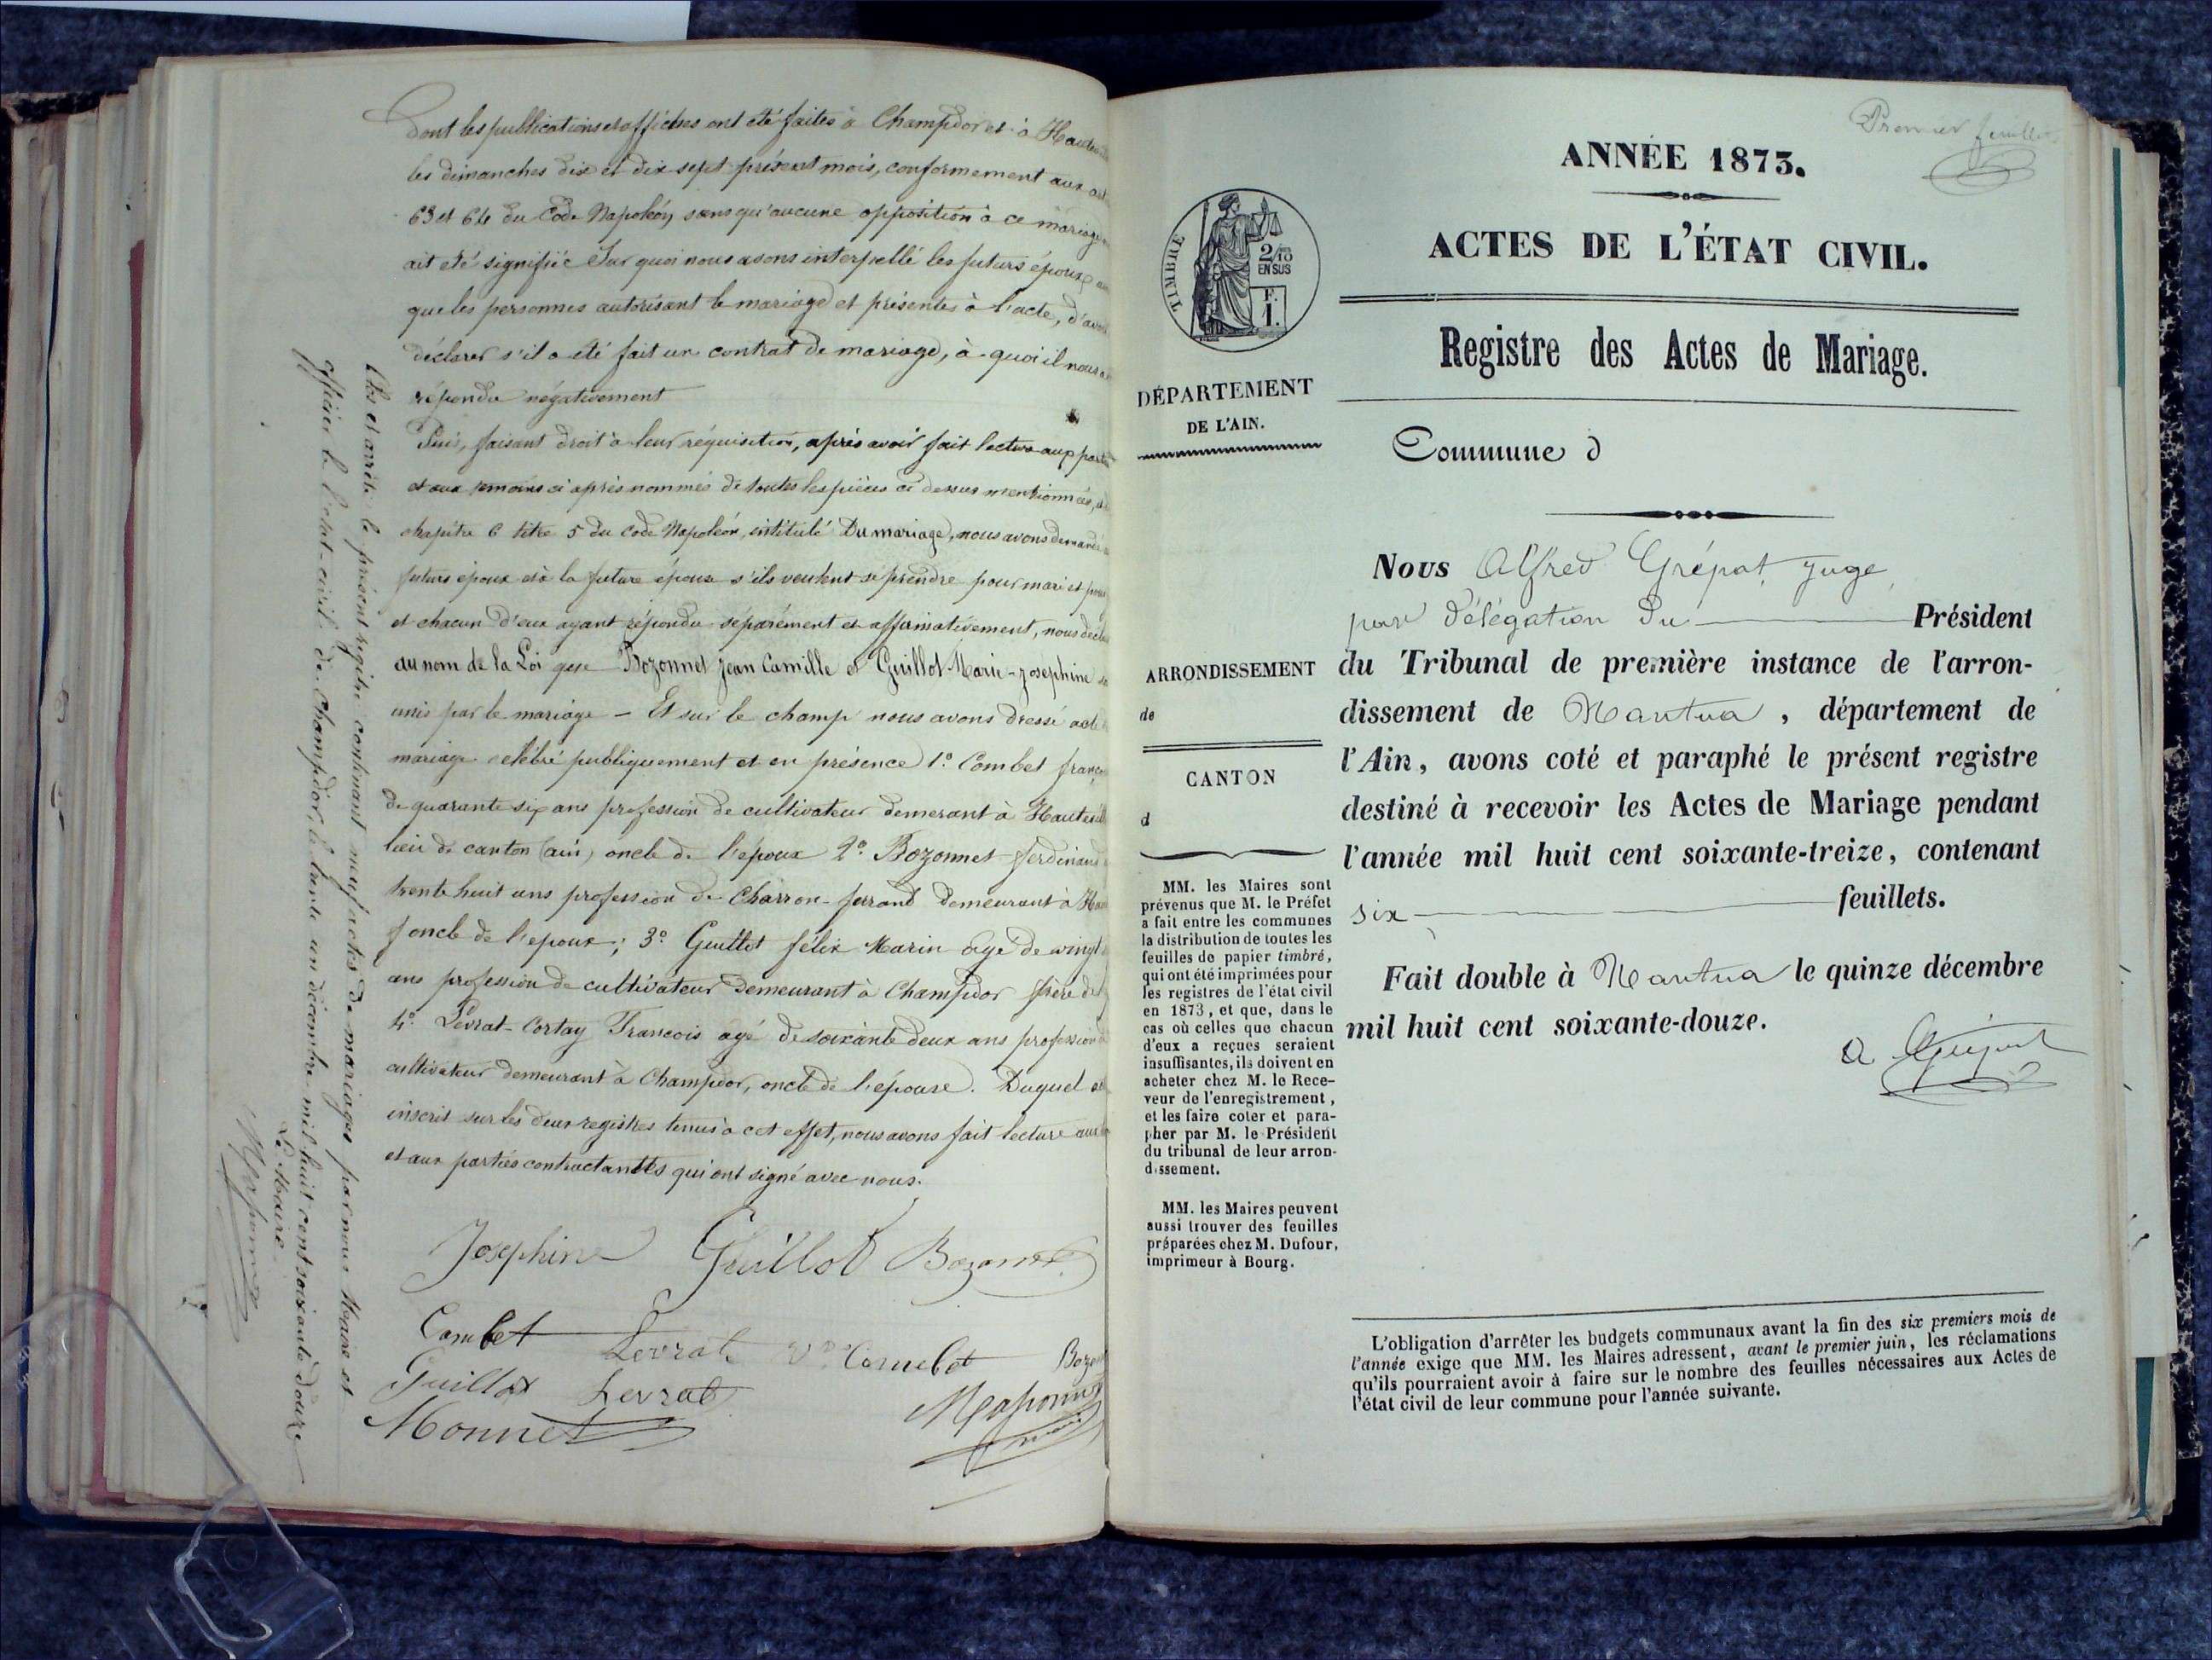 Dont les publications et affiches ont été faites à Champdor et à
les dimanches dix et dix sept présent mois, conformement aux
63 et 64 du Code Napoléon, sans qu'aucune opposition à ce mariage
ait eté signifiée Sur quoi nous avons interpellé les futurs époux
que les personnes autorisant le mariage et présentes à l'acte,
déclarer s'il a été fait un contrat de mariage, à quoi il nous
répondu négativement
Puis, faisant droit à leur réquisition, après avoir fait lecture aux
et aux témoins ci après nommés de toutes les pièces ci dessus mentionnées,
chapitre 6 titre 5 du Code Napoléon, intitulé Du mariage, nous avons demandé
futurs époux et à la future épouse s'ils veulent se prendre pour mari et pour
et chacun d'eux ayant répondu séparément et affirmativement, nous
au nom de la Loi que Bozonnet Jean Camille et Guillot Marie-Josephine
unis par le mariage - Et sur le champ nous avons dressé acte
mariage célébré publiquement et en présence 1º Combet
de quarante six ans profession de cultivateur demeurant à
lieu de canton (ain) oncle de l'époux 2º Bozonnet ferdinand
trente huit ans profession de Charron - demeurant à
oncle de l'epoux; 3º Guillot félix Marin agé de vingt
ans profession de cultivateur demeurant à Champdor frère de
4º Levrat-Cortay François agé de soixante deux ans profession
cultivateur demeurant à Champdor, oncle de l'épouse. Duquel
inscrit sur les deux registres tenus à cet effet, nous avons fait lecture aux
et aux parties contractantes qui ont signé avec nous.
Josephine Guillot Bozonnet
Combet Levrat Combet
Guillot Levrat
Monnet
Clos et arrêté le présent registre contenant neuf actes de mariages par nous Maire et
officier de l'etat-civil de Champdor, le trente un décembre mil huit cent soixante douze
Le Maire
Premier feuillet
ANNÉE 1873.
ACTES DE L'ÉTAT CIVIL.
Registre des Actes de Mariage.
Commune d
TIMBRE
2/10
EN SUS
F.
1.
DÉPARTEMENT
DE L'AIN.
ARRONDISSEMENT
de
CANTON
d
MM. les Maires sont
prévenus que M. le Préfet
a fait entre les communes
la distribution de toutes les
feuilles de papier timbré,
qui ont été imprimées pour
les registres de l'état civil
en 1873, et que, dans le
cas où celles que chacun
d'eux a reçues seraient
insuffisantes, ils doivent en
acheter chez M. le Rece-
veur de l'enregistrement,
et les faire coter et para-
pher par M. le Président
du tribunal de leur arron-
dissement.
MM. les Maires peuvent
aussi trouver des feuilles
préparées chez M. Dufour,
imprimeur à Bourg.
Nous Alfred Grépat, Juge,
par délégation du Président
du Tribunal de première instance de l'arron-
dissement de Nantua, département de
l'Ain, avons coté et paraphé le présent registre
destiné à recevoir les Actes de Mariage pendant
l'année mil huit cent soixante-treize, contenant
six feuillets.
Fait double à Nantua le quinze décembre
mil huit cent soixante-douze.
L'obligation d'arrêter les budgets communaux avant la fin des six premiers mois de
l'année exige que MM. les Maires adressent, avant le premier juin, les réclamations
qu'ils pourraient avoir à faire sur le nombre des feuilles nécessaires aux Actes de
l'état civil de leur commune pour l'année suivante.